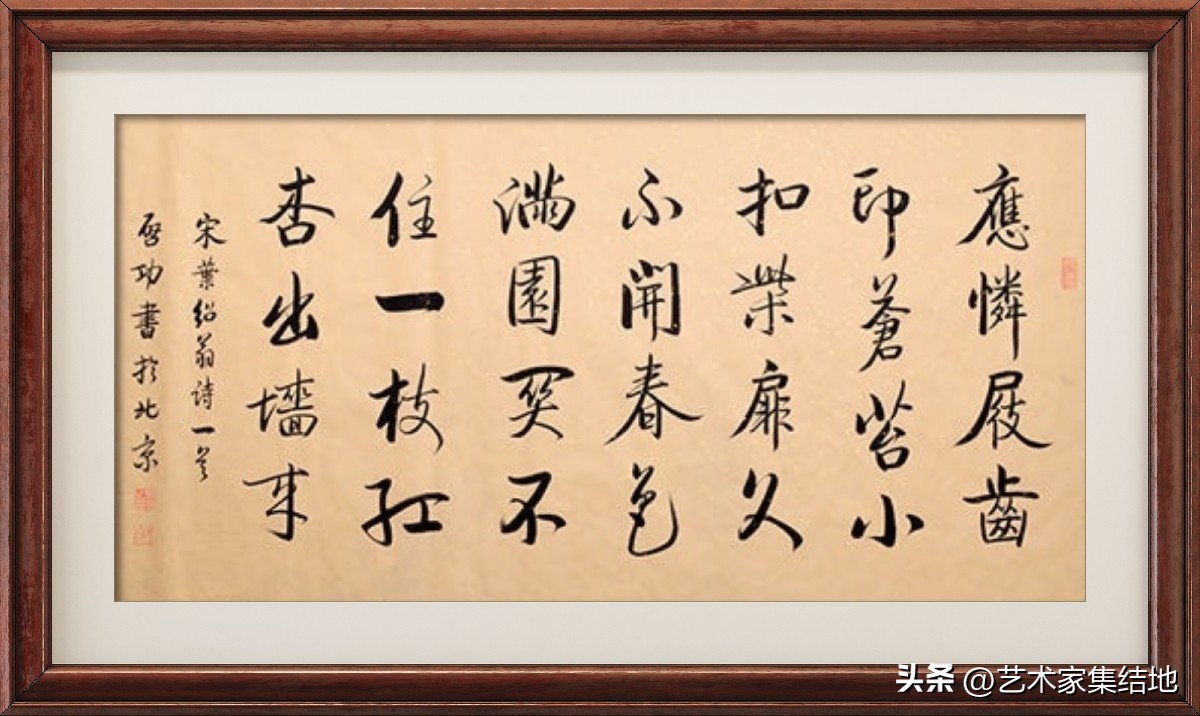 應憐屐齒
印蒼苔小
扣柴扉久
不開春色
滿園関不
住一枝紅
杏出墻來
宋葉绍翁诗一首
啓功書於北京
头条 @艺术家集结地